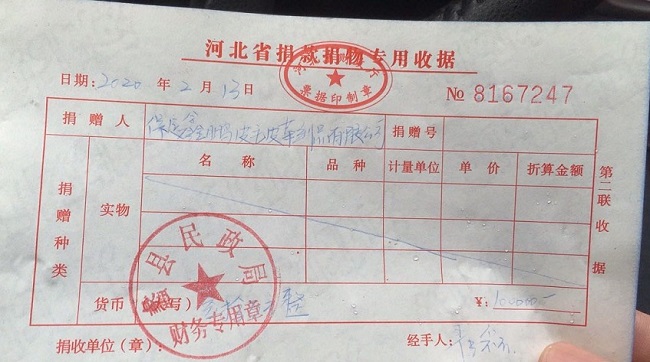 河北省捐款捐物专用收据
票据印制章
日期: 2020 年 2 月 13 日
№ 8167247
捐赠人 保定 皮毛皮革制品有限公司 捐赠号
捐赠种类 实物 名称 品种 计量单位 单价 折算金额
货币(大写) 整 ¥: 100000-
捐收单位(章): 经手人:
县民政局
财务专用章
第二联收据